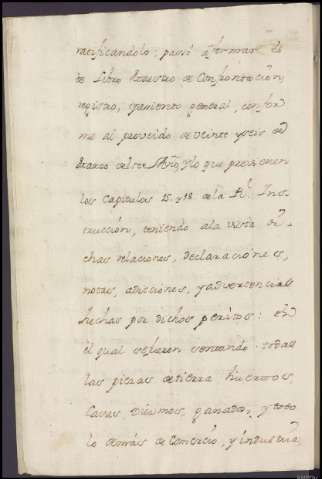 ratificandolo: pasó a formar es
te Libro Rexistro de Confrontacion,
registro, y asiento general, confor
me al proveido de veinte y seis de
Marzo de este Año, y lo que previenen
los Capitulos 15. y 18. de la Rl. Ins
truccion, teniendo ala vista di
chas relaciones, declaraciones,
notas, adicciones, y advertencias
hechas por dichos peritos: en
el qual se hiran sentando todas
las piezas de tierra huertos,
Casas Diezmos, ganados, y todo
lo demás de Comercio, y industria